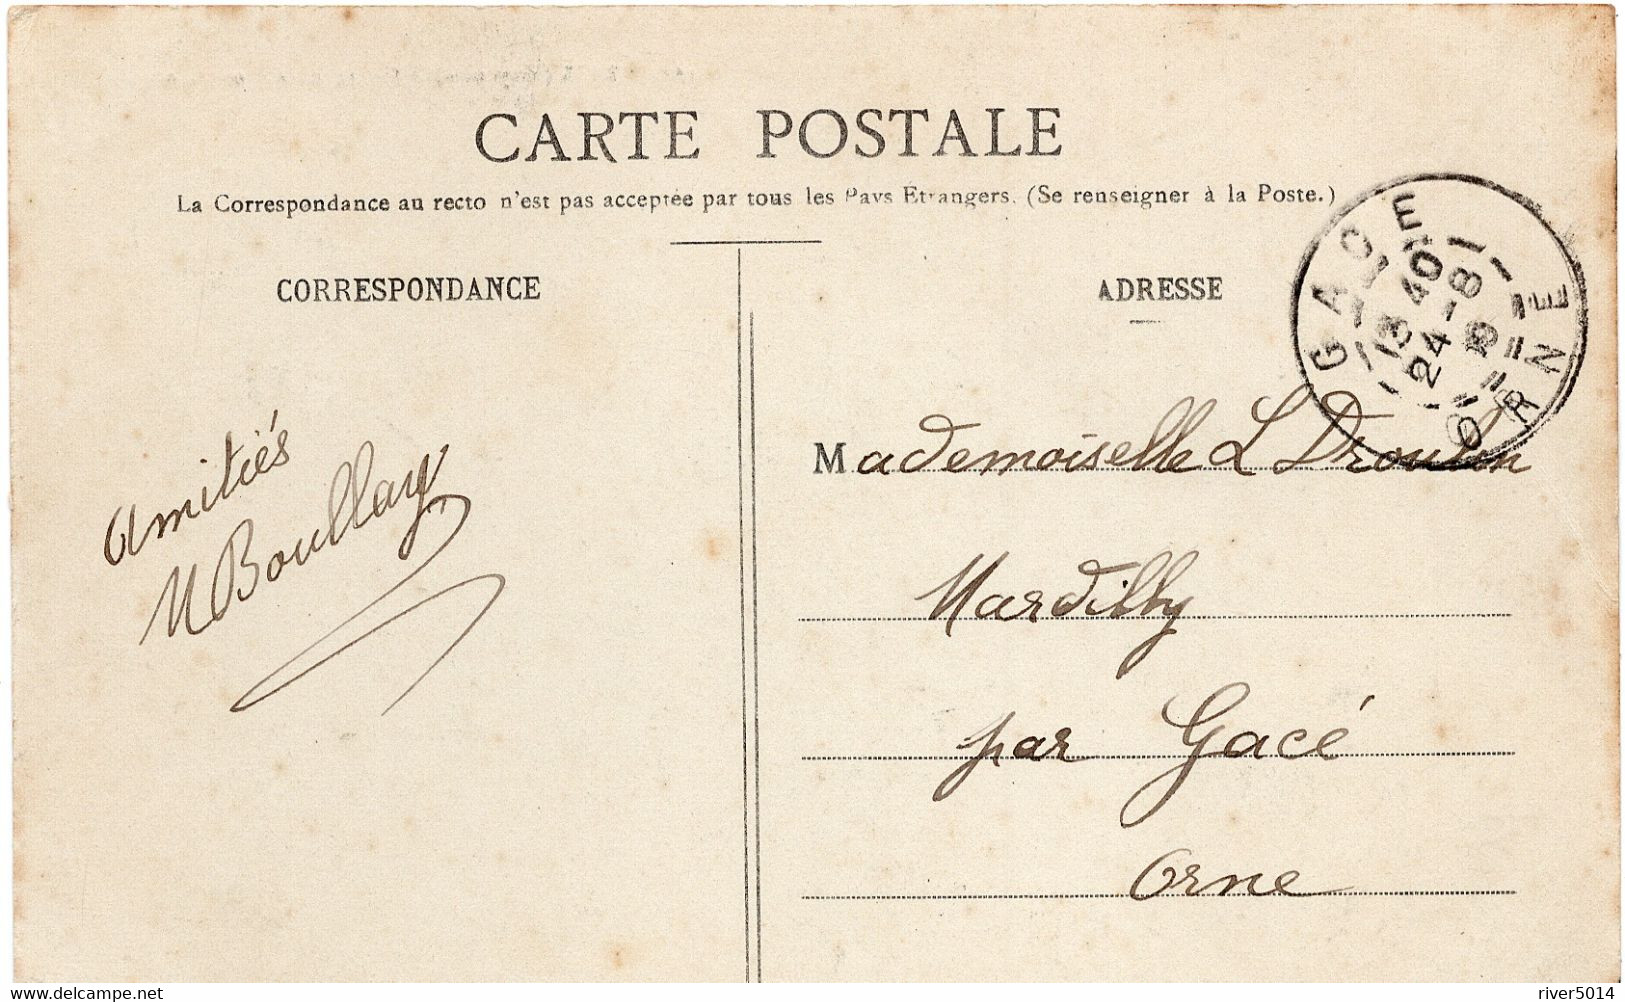 CARTE POSTALE
La Correspondance au recto n'est pas acceptée par tous les Pays Etrangers. (Se renseigner à la Poste.)
CORRESPONDANCE
ADRESSE
GACE
13 40
24 - 8
ORNE
Amitiés
M Boullay
Mademoiselle L Droulin
Mardilly
par Gacé
Orne
www.delcampe.net
river5014